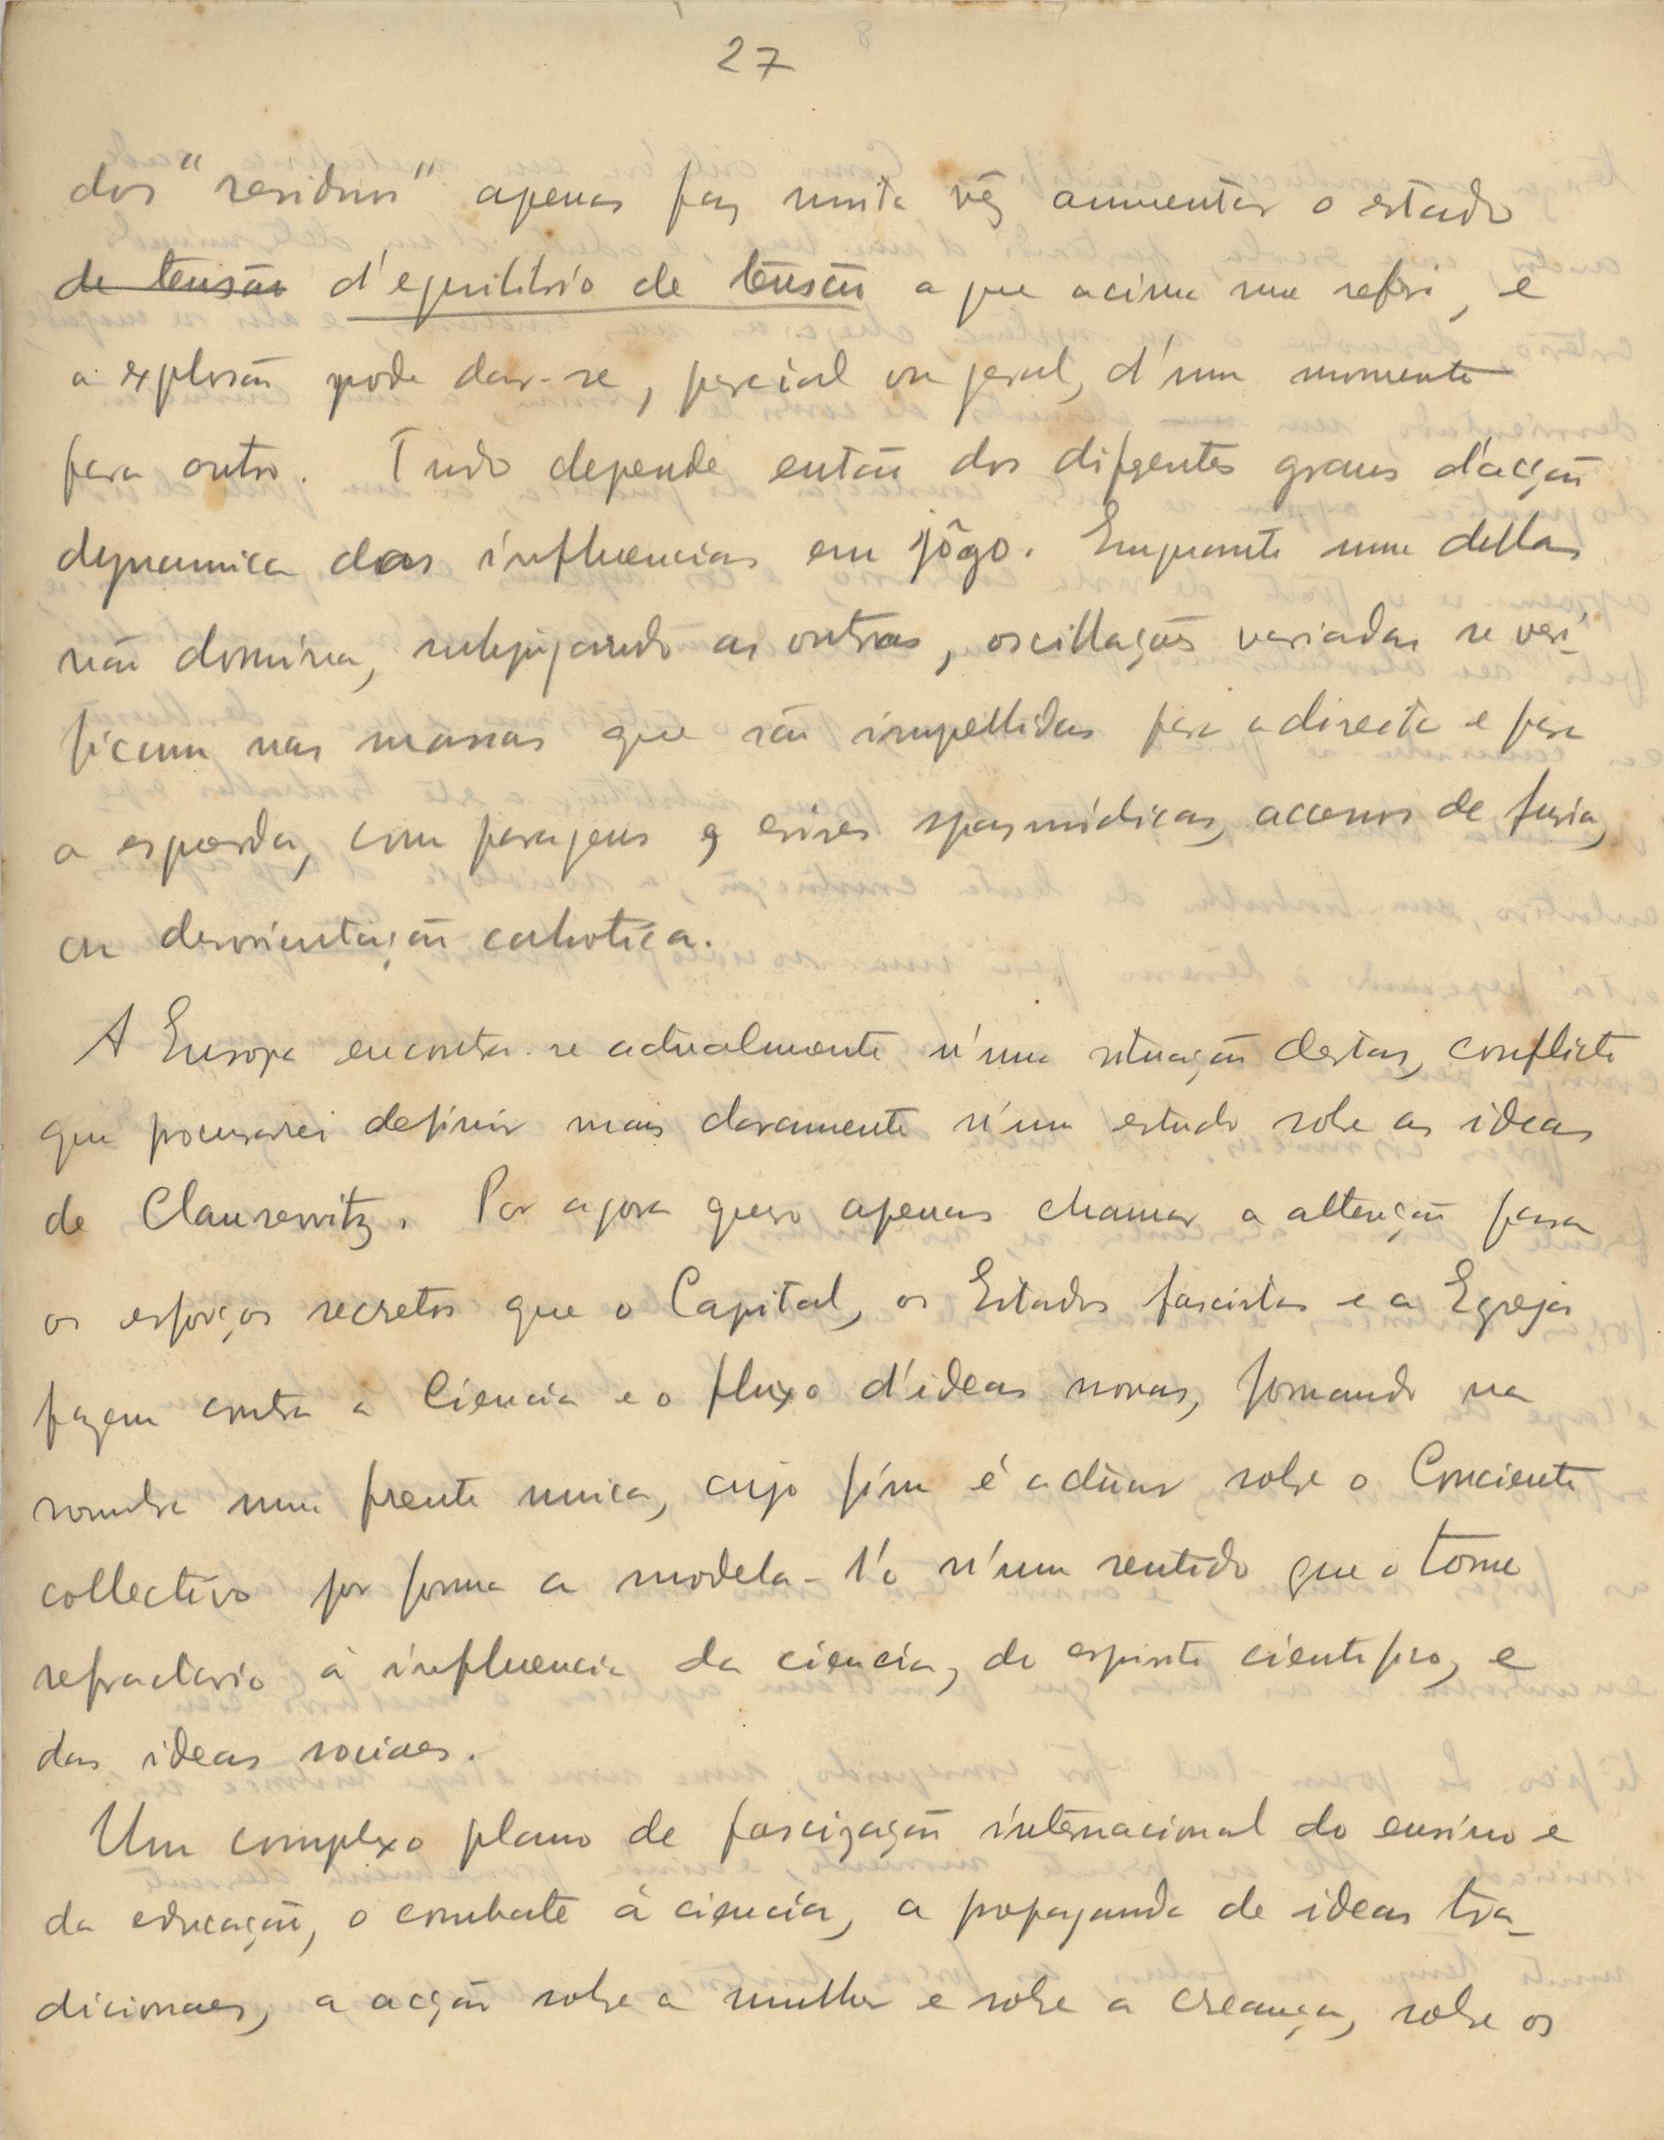 27
dos "residuos" apenas faz muita vêz aumentar o estado
de tensão d'equilibrio de tensão a que acima me referi, e
a explosão pode dar-se, parcial ou geral, d'um momento
para outro. Tudo depende então dos difrentes graus d'acção
dynamica das influencias em jôgo. Emquanto uma dellas
não domina, subjugando as outras, oscillações variadas se veri-
ficam nas massas que são impellidas para a direcita e para
a esquerda, com paragens e crises spasmódicas, accessos de furia,
ou desorientação cahotica.
A Europa encontra-se actualmente n'uma situação destas, conflicto
que procurarei definir mais claramente n'um estudo sobre as ideas
de Clausewitz. Por agora quero apenas chamar a attenção para
os esforços secretos que o Capital, os Estados fascistas e a Egreja
fazem contra a Ciencia e o fluxo d'ideas novas, formando na
sombra uma frente unica, cujo fim é actuar sobre o Conciente
collectivo por forma a modela-l'o n'um sentido que o torne
refractario á influencia da ciencia, do espirito cientifico, e
das ideas sociaes.
Um complexo plano de fascização internacional do ensino e
da educação, o combate á ciencia, a propaganda de ideas tra-
dicionaes, a acção sobre a mulher e sobre a creança, sobre os